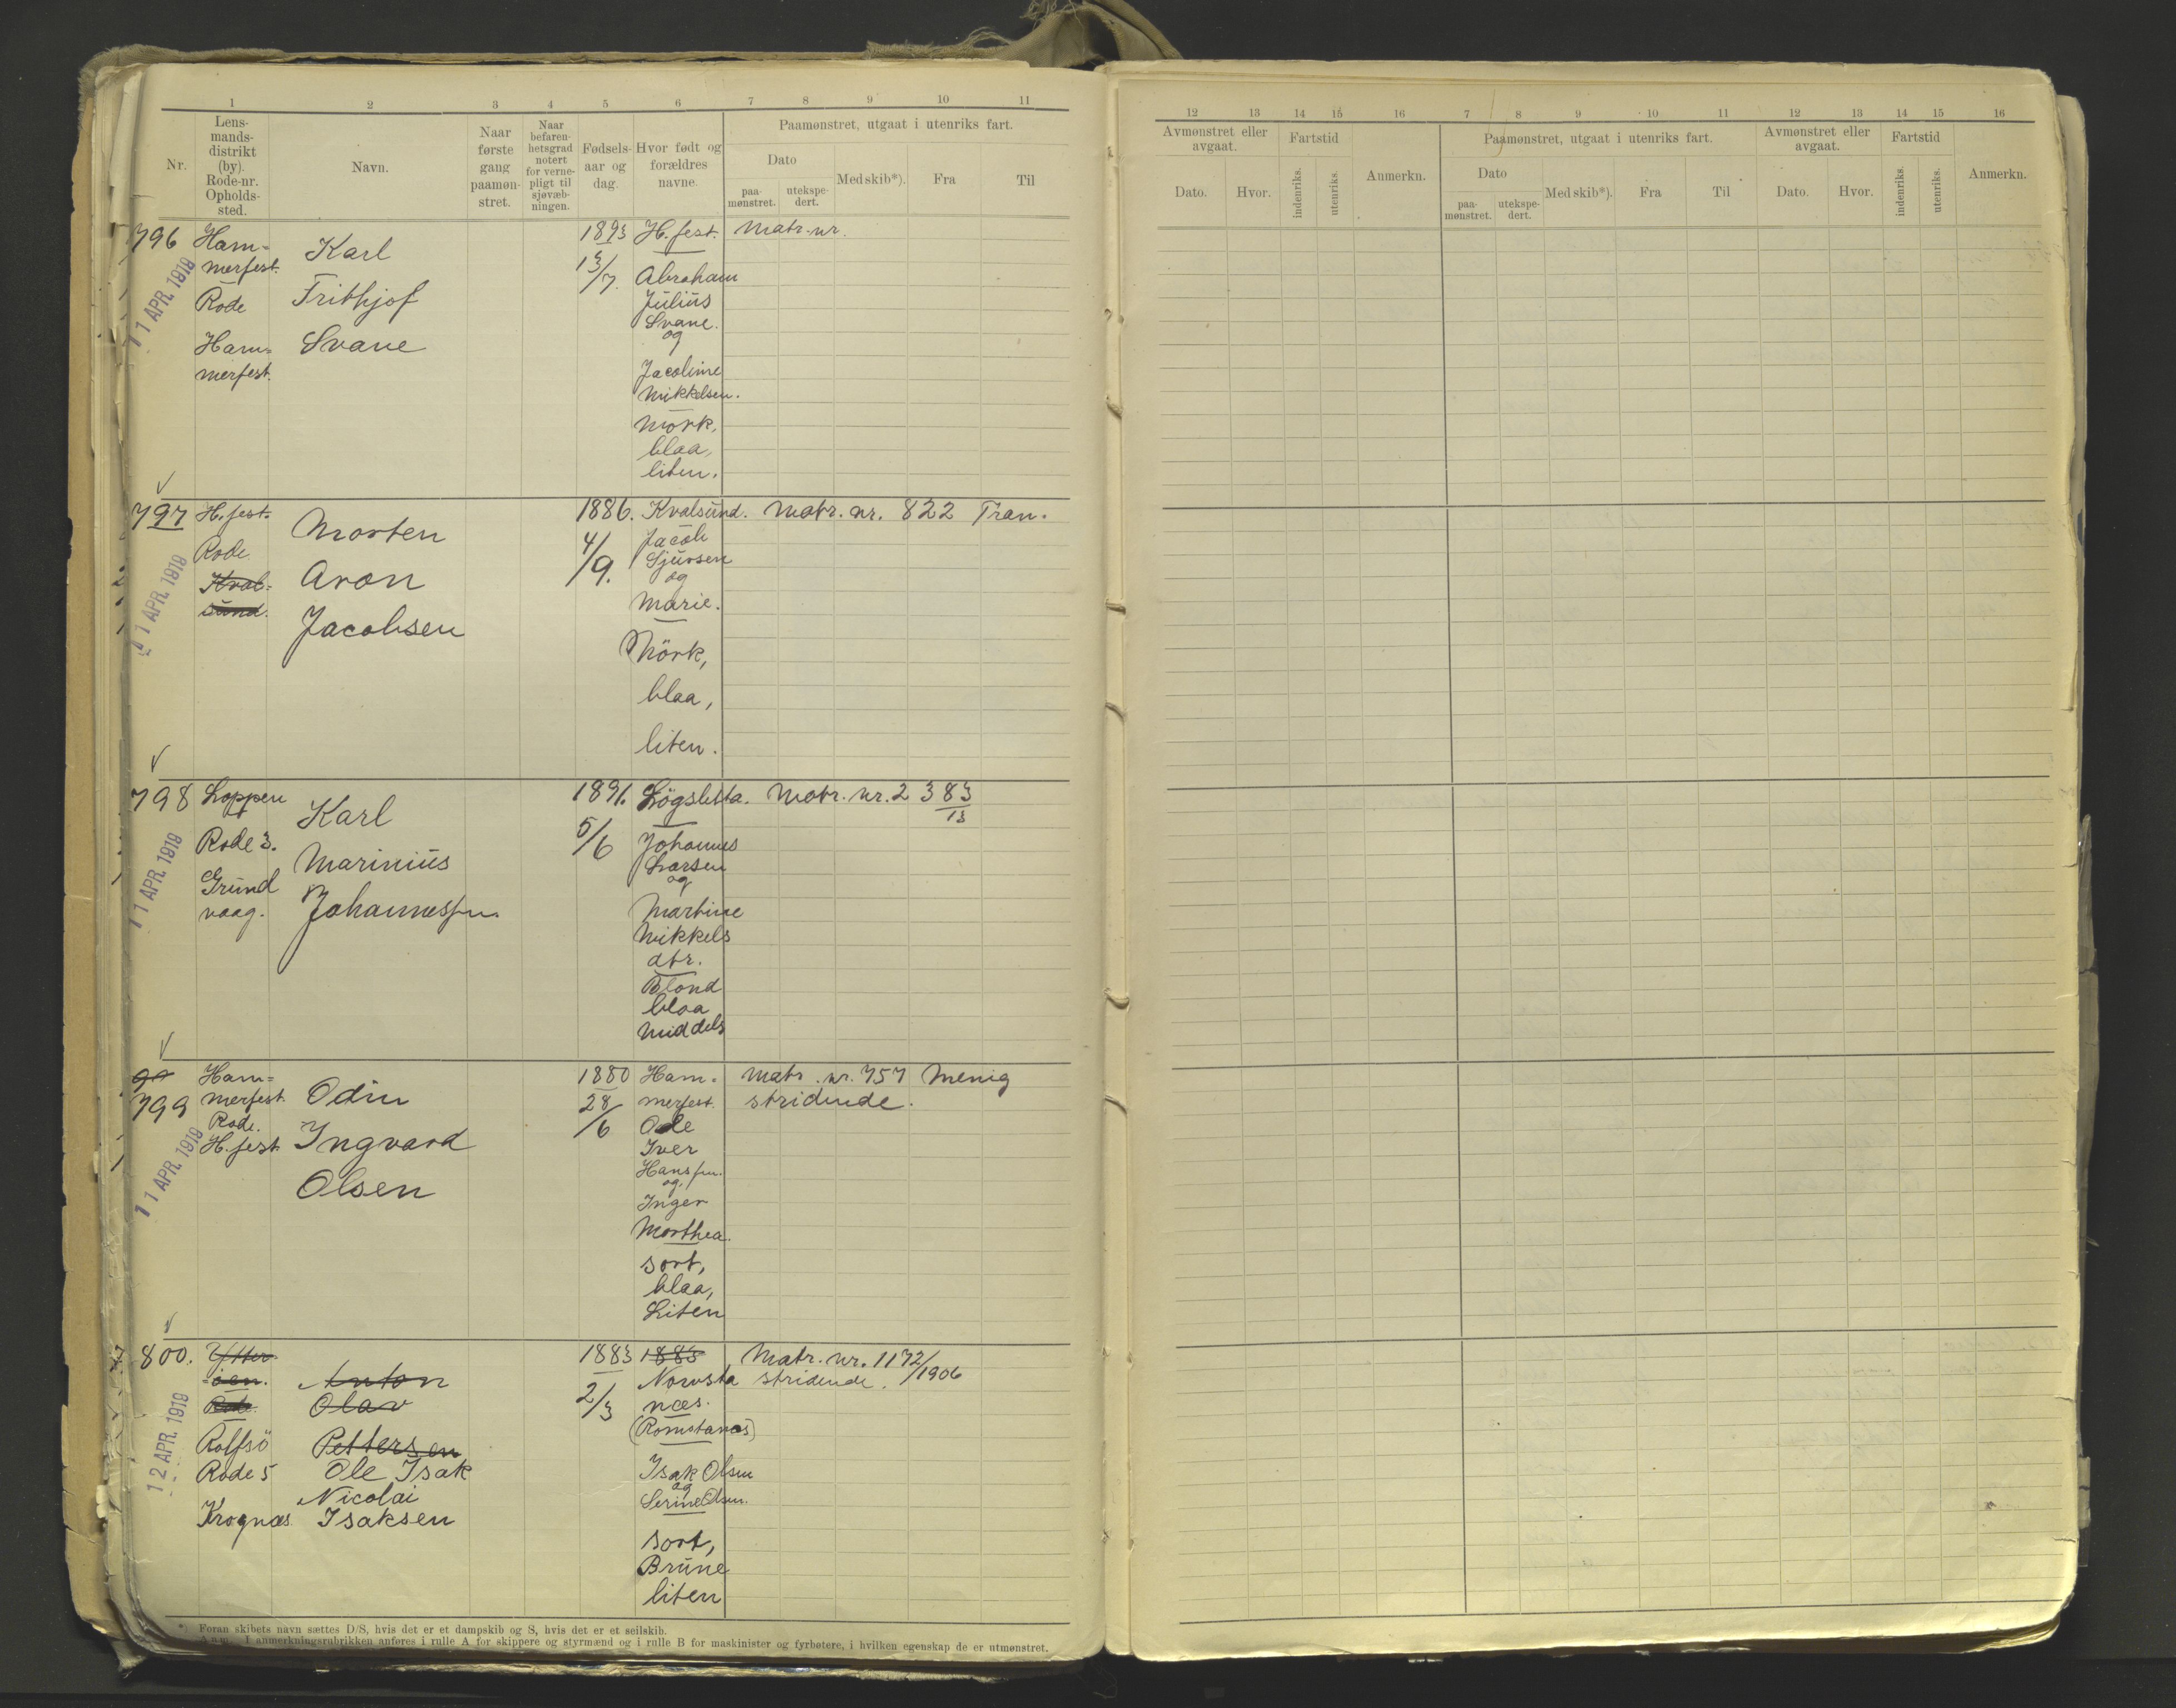 1 2 3 4 5 6 7 8 9 10 11
Nr.
Lens-
mands-
distrikt
(by).
Rode-nr.
Opholds-
sted.
Navn.
Naar
første
gang
paamøn-
stret.
Naar
befaren-
hetsgrad
notert
for verne-
pligt til
sjøvæb-
ningen.
Fødsels-
aar og
dag.
Hvor født og
forældres
navne.
Paamønstret, utgaat i utenriks fart.
Dato
paa-
mønstret.
utekspe-
dert.
Med skib*).
Fra
Til
796
11 APR. 1919
Ham-
merfest.
Rode
Ham=
merfest.
Karl
Frithjof
Svane
1893
13/7.
H.fest.
Abraham
Julius
Svane.
og
Jacoline
Mikkelsen.
Mörk,
blaa,
liten.
Matr. nr.
797
11 APR. 1919
H.fest.
Rode
Kval=
sund.
Morten
Aron
Jacobsen
1886.
4/9.
Kvalsund.
Jacob
Sjursen
og
Marie.
Mörk,
blaa,
liten.
Matr. nr. 822 Tran.
798
11 APR. 1919
Loppen
Rode 3.
Grund
vaag.
Karl
Marinius
Johannessen.
1891.
5/6
Lögsletta.
Johannes
Larsen
og
Martine
Mikkels
dtr.
Blond
blaa
Middels
Matr. nr. 2383
13
799
11 APR. 1919
Ham=
merfest.
Rode.
H.fest
Odin
Ingvard
Olsen
1880
28/6
Ham.
merfest.
Ole
Iver
Hanssen.
og.
Inger
Morthea.
sort,
blaa,
Liten
Matr. nr. 757 Menig
stridende.
800.
12 APR. 1919
Ytter-
öen.
Rode.
Rolfsö
Rode 5
Krognæs
Anton
Olav
Pettersen
Ole Isak
Nicolai
Isaksen
1883
2/3
1883
Norvsta
næs.
(Romstanæs)
Isak Olsen
og
Serine Olsen.
sort,
Brune
liten
Matr. nr. 1172/1906
stridende.
*) Foran skibets navn sættes D/S, hvis det er et dampskib og S, hvis det er et seilskib.
Anm. I anmerkningsrubrikken anføres i rulle A for skippere og styrmænd og i rulle B for maskinister og fyrbøtere, i hvilken egenskap de er utmønstret.
12 13 14 15 16 7 8 9 10 11 12 13 14 15 16
Avmønstret eller
avgaat.
Dato.
Hvor.
Fartstid
indenriks.
utenriks.
Anmerkn.
Paamønstret, utgaat i utenriks fart.
Dato
paa-
mønstret.
utekspe-
dert.
Med skib*).
Fra
Til
Avmønstret eller
avgaat.
Dato.
Hvor.
Fartstid
indenriks.
utenriks.
Anmerkn.